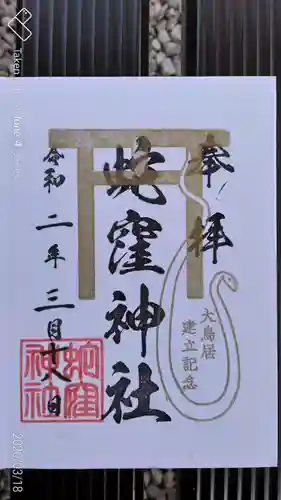 奉拝
大鳥居
建立記念
蛇窪神社
令和二年三月十八日
蛇窪
神社
2020/03/18